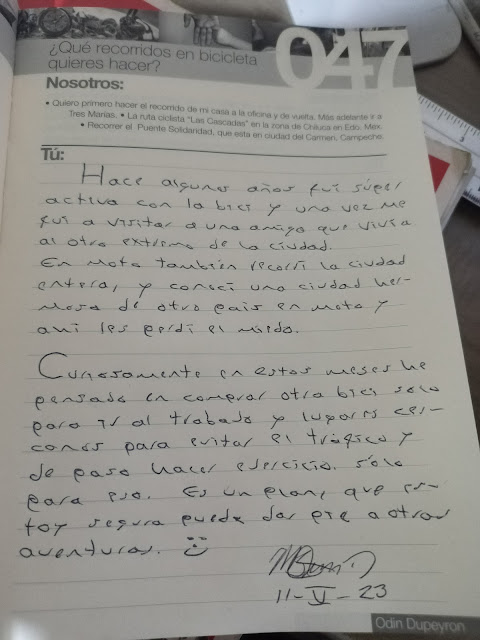 047
¿Qué recorridos en bicicleta
quieres hacer?
Nosotros:
• Quiero primero hacer el recorrido de mi casa a la oficina y de vuelta. Más adelante ir a
Tres Marías. • La ruta ciclista "Las Cascadas" en la zona de Chiluca en Edo. Mex.
• Recorrer el Puente Solidaridad, que esta en ciudad del Carmen, Campeche.
Tú:
Hace algunos años fui súper
activa con la bici y una vez me
fui a visitar a una amiga que vivía
al otro extremo de la ciudad.
En moto también recorrí la ciudad
entera, y conocí una ciudad her-
mosa de otro país en moto y
ahí les perdí el miedo.
Curiosamente en estos meses he
pensado en comprar otra bici solo
para ir al trabajo y lugares cer-
canos para evitar el tráfico y
de paso hacer ejercicio. Sólo
para eso. Es un plan, que es-
toy segura puede dar pie a otras
aventuras. :)
11-V-23
Odin Dupeyron